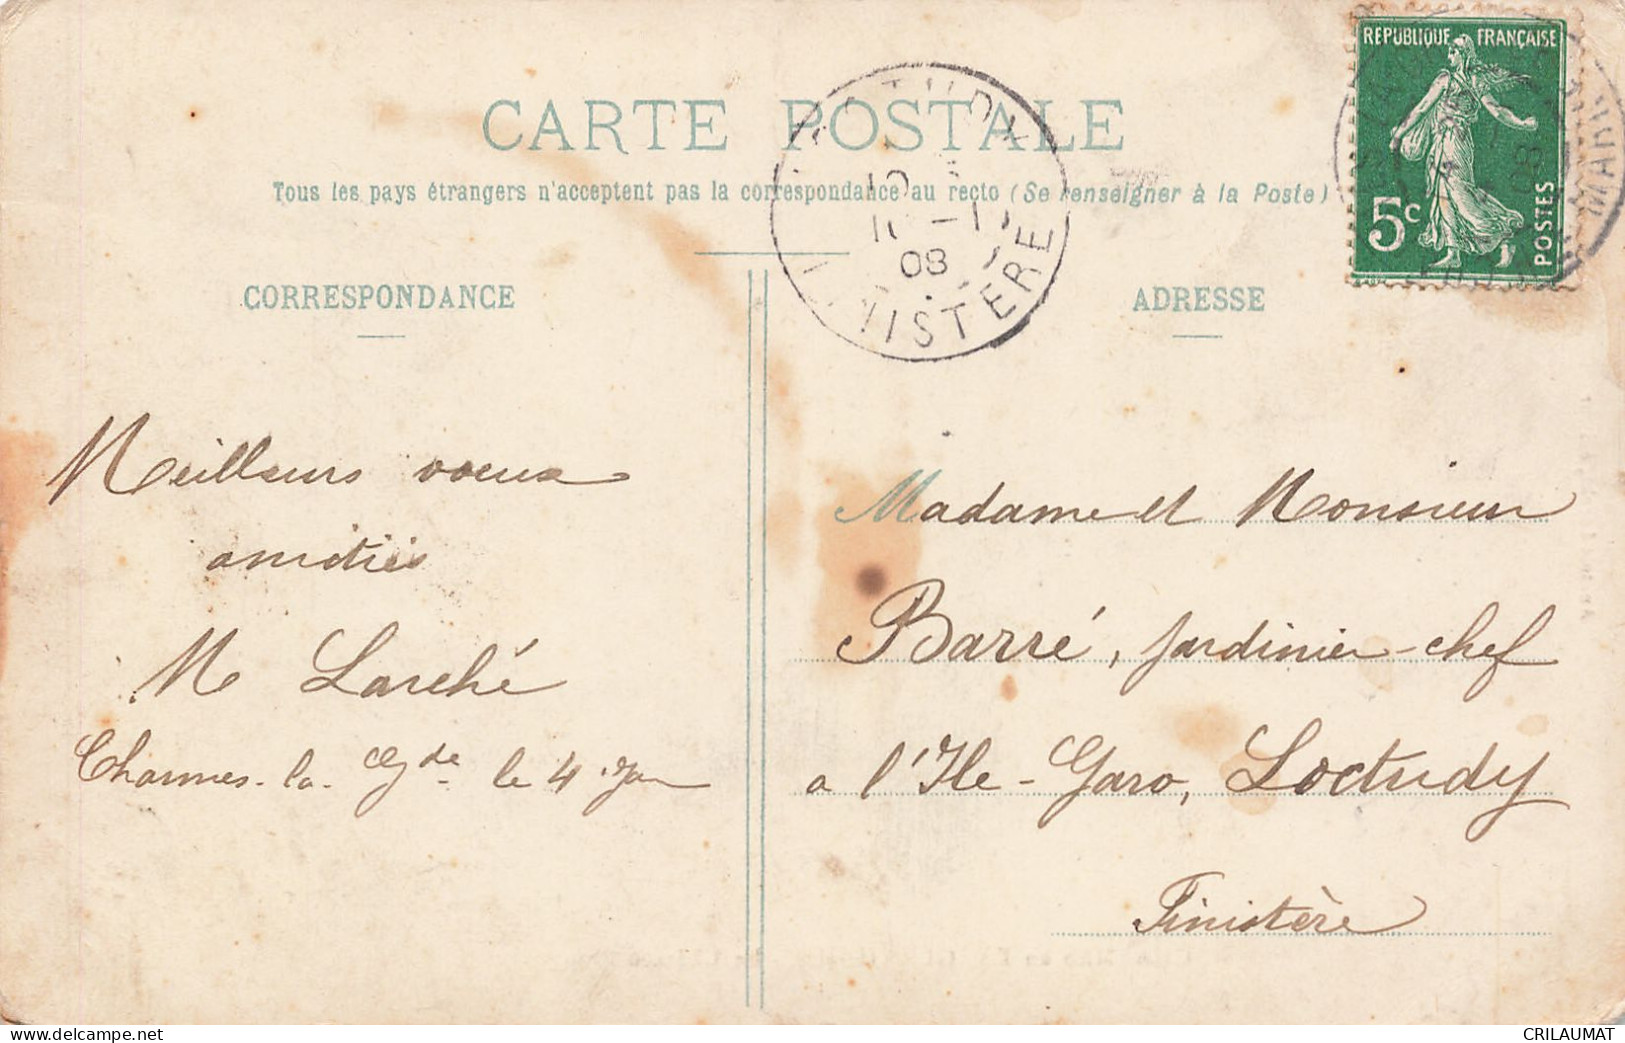 CARTE POSTALE
Tous les pays étrangers n'acceptent pas la correspondance au recto (Se renseigner à la Poste)
RÉPUBLIQUE FRANÇAISE
5c
POSTES
08
FINISTERE
CORRESPONDANCE
ADRESSE
Meilleurs voeux
amitiés
M Larché
Charmes-la-Gde le 4 Jan
Madame et Monsieur
Barré, jardinier-chef
a l'Ile-Garo, Loctudy
Finistère
www.delcampe.net
CRILAUMAT